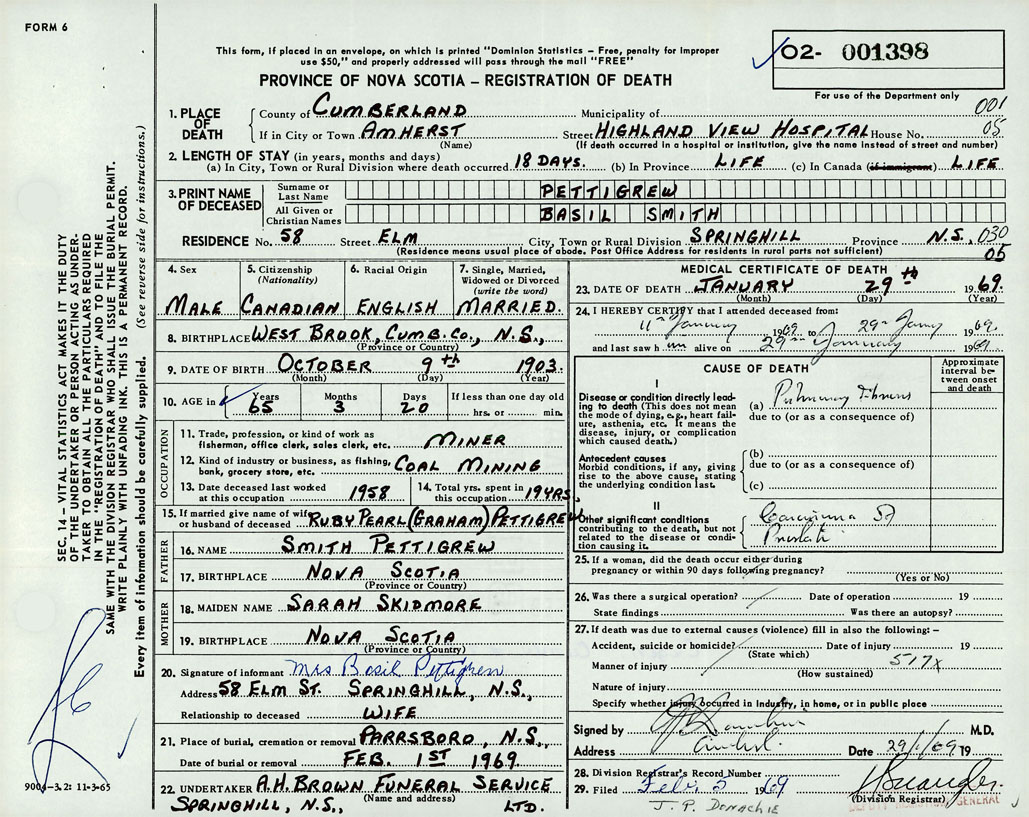 FORM 6
This form, if placed in an envelope, on which is printed "Dominion Statistics – Free, penalty for improper
use $50," and properly addressed will pass through the mail "FREE"
PROVINCE OF NOVA SCOTIA – REGISTRATION OF DEATH
02- 001398
For use of the Department only
001
1. PLACE OF DEATH
County of CUMBERLAND Municipality of
If in City or Town AMHERST Street HIGHLAND VIEW HOSPITAL House No. 05
(Name) (If death occurred in a hospital or institution, give the name instead of street and number)
2. LENGTH OF STAY (in years, months and days)
(a) In City, Town or Rural Division where death occurred 18 DAYS. (b) In Province LIFE (c) In Canada (if immigrant) LIFE
3. PRINT NAME OF DECEASED
Surname or Last Name PETTIGREW
All Given or Christian Names BASIL SMITH
RESIDENCE No. 58 Street ELM City, Town or Rural Division SPRINGHILL Province N.S. 030
(Residence means usual place of abode. Post Office Address for residents in rural parts not sufficient) 05
4. Sex
MALE
5. Citizenship
(Nationality)
CANADIAN
6. Racial Origin
ENGLISH
7. Single, Married,
Widowed or Divorced
(write the word)
MARRIED.
8. BIRTHPLACE WEST BROOK, CUMB. CO., N.S.,
(Province or Country)
9. DATE OF BIRTH OCTOBER 9th 1903.
(Month) (Day) (Year)
10. AGE in Years Months Days If less than one day old
65 3 20 hrs. or min.
OCCUPATION
11. Trade, profession, or kind of work as
fisherman, office clerk, sales clerk, etc. MINER
12. Kind of industry or business, as fishing,
bank, grocery store, etc. COAL MINING
13. Date deceased last worked
at this occupation 1958
14. Total yrs. spent in
this occupation 19 YRS.
15. If married give name of wife
or husband of deceased RUBY PEARL (GRAHAM) PETTIGREW
FATHER
16. NAME SMITH PETTIGREW
17. BIRTHPLACE NOVA SCOTIA
(Province or Country)
MOTHER
18. MAIDEN NAME SARAH SKIDMORE
19. BIRTHPLACE NOVA SCOTIA
(Province or Country)
20. Signature of informant Mrs Basil Pettigrew
Address 58 ELM ST. SPRINGHILL, N.S.,
Relationship to deceased WIFE
21. Place of burial, cremation or removal PARRSBORO, N.S.,
Date of burial or removal FEB. 1ST 1969.
22. UNDERTAKER A.H. BROWN FUNERAL SERVICE
(Name and address)
SPRINGHILL, N.S., LTD.
MEDICAL CERTIFICATE OF DEATH
23. DATE OF DEATH JANUARY 29th 1969.
(Month) (Day) (Year)
24. I HEREBY CERTIFY that I attended deceased from:
11th January 1969 to 29th 1969.
and last saw h im alive on 29th January 1969
CAUSE OF DEATH
Approximate
interval be-
tween onset
and death
I
Disease or condition directly lead-
ing to death (This does not mean
the mode of dying, e.g., heart failure,
asthenia, etc. It means the
disease, injury, or complication
which caused death.)
(a) Pulmonary Fibrosis
due to (or as a consequence of)
Antecedent causes
Morbid conditions, if any, giving
rise to the above cause, stating
the underlying condition last.
(b)
due to (or as a consequence of)
(c)
II
Other significant conditions
contributing to the death, but not
related to the disease or condi-
tion causing it.
Carcinoma of
Prostate
25. If a woman, did the death occur either during
pregnancy or within 90 days following pregnancy?
(Yes or No)
26. Was there a surgical operation? Date of operation 19
State findings Was there an autopsy?
27. If death was due to external causes (violence) fill in also the following: –
Accident, suicide or homicide? Date of injury 19
(State which)
Manner of injury 517X
(How sustained)
Nature of injury
Specify whether injury occurred in industry, in home, or in public place
Signed by M.D.
Address Amherst. Date 29/1/69 19
28. Division Registrar's Record Number
29. Filed Feb. 5 1969
(Division Registrar)
J. P. DONACHIE
DEPUTY REGISTRAR GENERAL
SEC. 14 – VITAL STATISTICS ACT MAKES IT THE DUTY
OF THE UNDERTAKER OR PERSON ACTING AS UNDER-
TAKER TO OBTAIN ALL THE PARTICULARS REQUIRED
IN THE "REGISTRATION OF DEATH" AND TO FILE THE
SAME WITH THE DIVISION REGISTRAR WHO SHALL ISSUE THE BURIAL PERMIT.
WRITE PLAINLY WITH UNFADING INK. THIS IS A PERMANENT RECORD.
Every item of information should be carefully supplied. (See reverse side for instructions.)
9004-3.2: 11-3-65